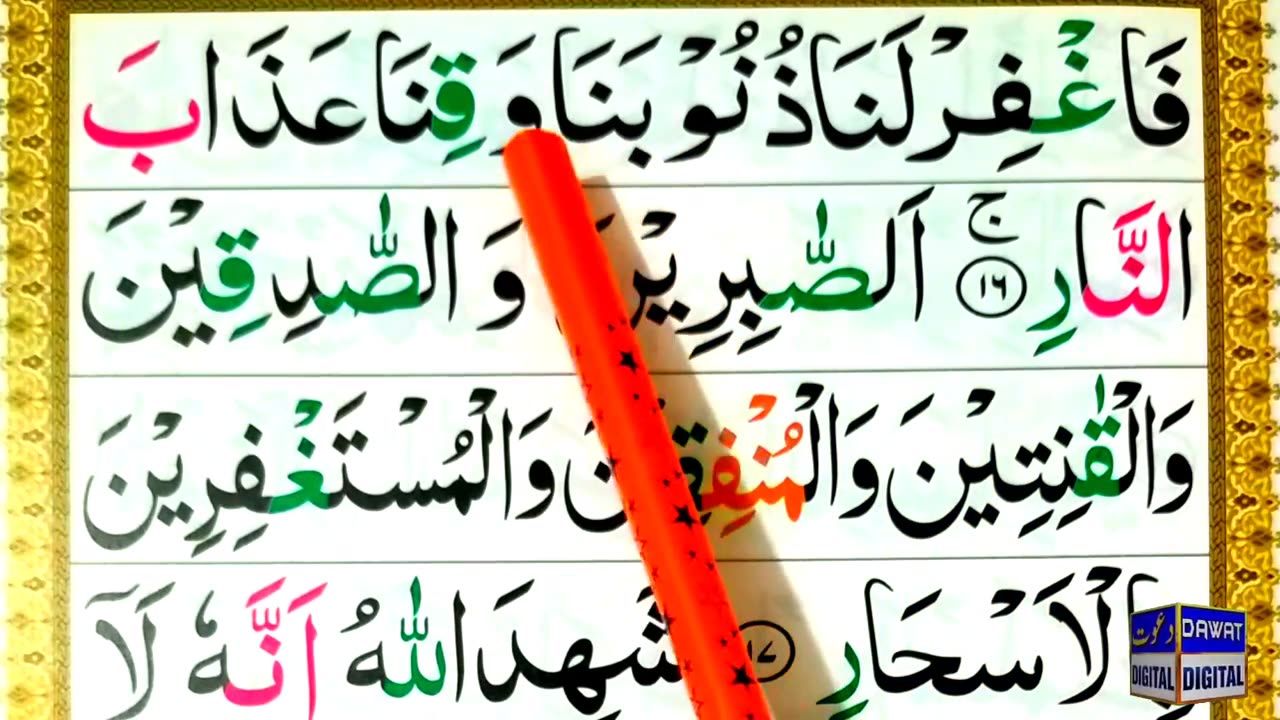 فَاغْفِرْ لَنَا ذُنُوْبَنَا وَ قِنَا عَذَابَ
النَّارِ ۚ ﴿۱۶﴾ اَلصّٰبِرِیْنَ وَ الصّٰدِقِیْنَ
وَالْقٰنِتِیْنَ وَالْمُنْفِقِیْنَ وَالْمُسْتَغْفِرِیْنَ
بِالْاَسْحَارِ ﴿۱۷﴾ شَهِدَ اللّٰهُ اَنَّهٗ لَاۤ
دعوت DAWAT
DIGITAL DIGITAL